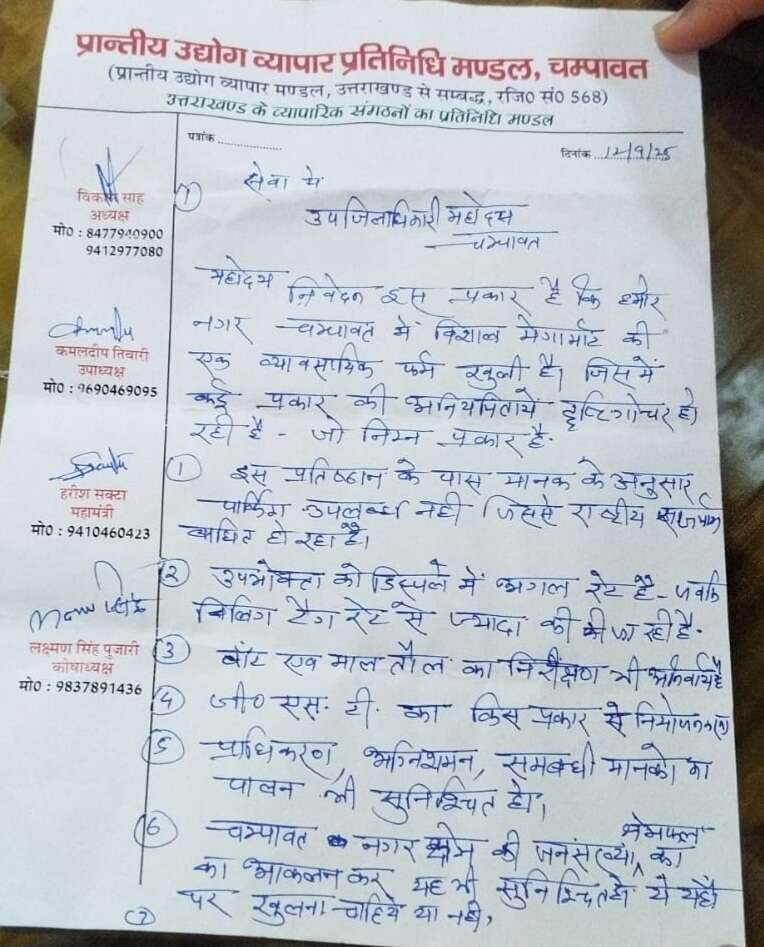 प्रान्तीय उद्योग व्यापार प्रतिनिधि मण्डल, चम्पावत
(प्रान्तीय उद्योग व्यापार मण्डल, उत्तराखण्ड से सम्बद्ध, रजि0 सं0 568)
उत्तराखण्ड के व्यापारिक संगठनों का प्रतिनिधि मण्डल
पत्रांक ..................
दिनांक ...12/9/25
विकास साह
अध्यक्ष
मो0 : 8477940900
9412977080
कमलदीप तिवारी
उपाध्यक्ष
मो0 : 9690469095
हरीश सक्टा
महामंत्री
मो0 : 9410460423
लक्ष्मण सिंह पुजारी
कोषाध्यक्ष
मो0 : 9837891436
सेवा में
उपजिलाधिकारी महोदय
चम्पावत
महोदय
निवेदन इस प्रकार है कि हमारे
नगर चम्पावत में विशाल मेगामार्ट की
एक व्यावसायिक फर्म खुली है। जिसमें
कई प्रकार की अनियमितायें दृष्टिगोचर हो
रही है - जो निम्न प्रकार है-
① इस प्रतिष्ठान के पास मानक के अनुसार
पार्किंग उपलब्ध नही जिससे राष्ट्रीय राजमार्ग
बाधित हो रहा है।
② उपभोक्ता को डिस्पले में अगल रेट है - जबकि
बिलिंग टैग रेट से ज्यादा की जा रही है-
③ बांट एव माल तौल का निरीक्षण भी अनिवार्य है
④ जी० एस. टी. का किस प्रकार से
⑤ प्राधिकरण, अग्निशमन, समबन्धी मानको का
पालन भी सुनिश्चित हो।
⑥ चम्पावत नगर क्षेत्र की जनसंख्या, क्षेत्रफल का
का आकलन कर यह भी सुनिश्चित हो ये यहाँ
पर खुलना चाहिये या नही,
⑦